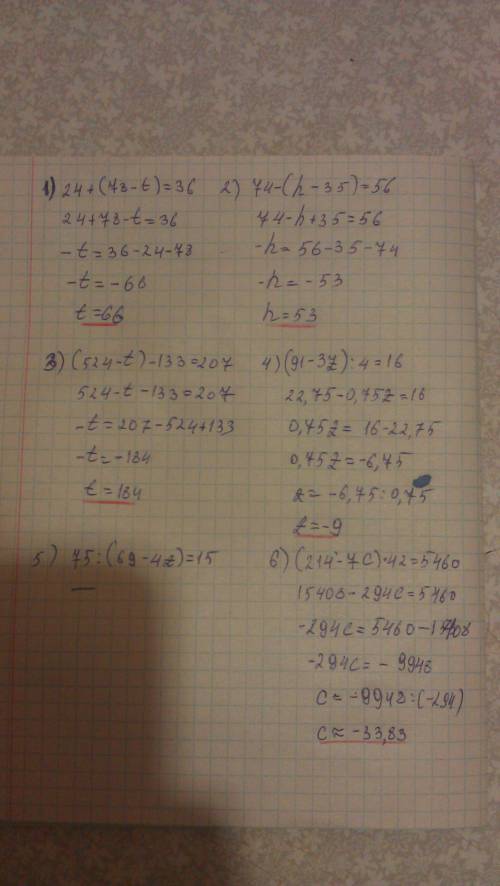 1) 24+(78-t)=36
24+78-t=36
-t=36-24-78
-t=-66
t=66
2) 74-(h-35)=56
74-h+35=56
-h=56-35-74
-h=-53
h=53
3) (524-t)-133=207
524-t-133=207
-t=207-524+133
-t=-184
t=184
4) (91-3z):4=16
22,75-0,75z=16
0,75z=16-22,75
0,75z=-6,75
z=-6,75:0,75
z=-9
5) 75:(69-4z)=15
—
6) (214-7c)·42=5460
15408-294c=5460
-294c=5460-15408
-294c=-9948
c=-9948:(-294)
c≈-33,83